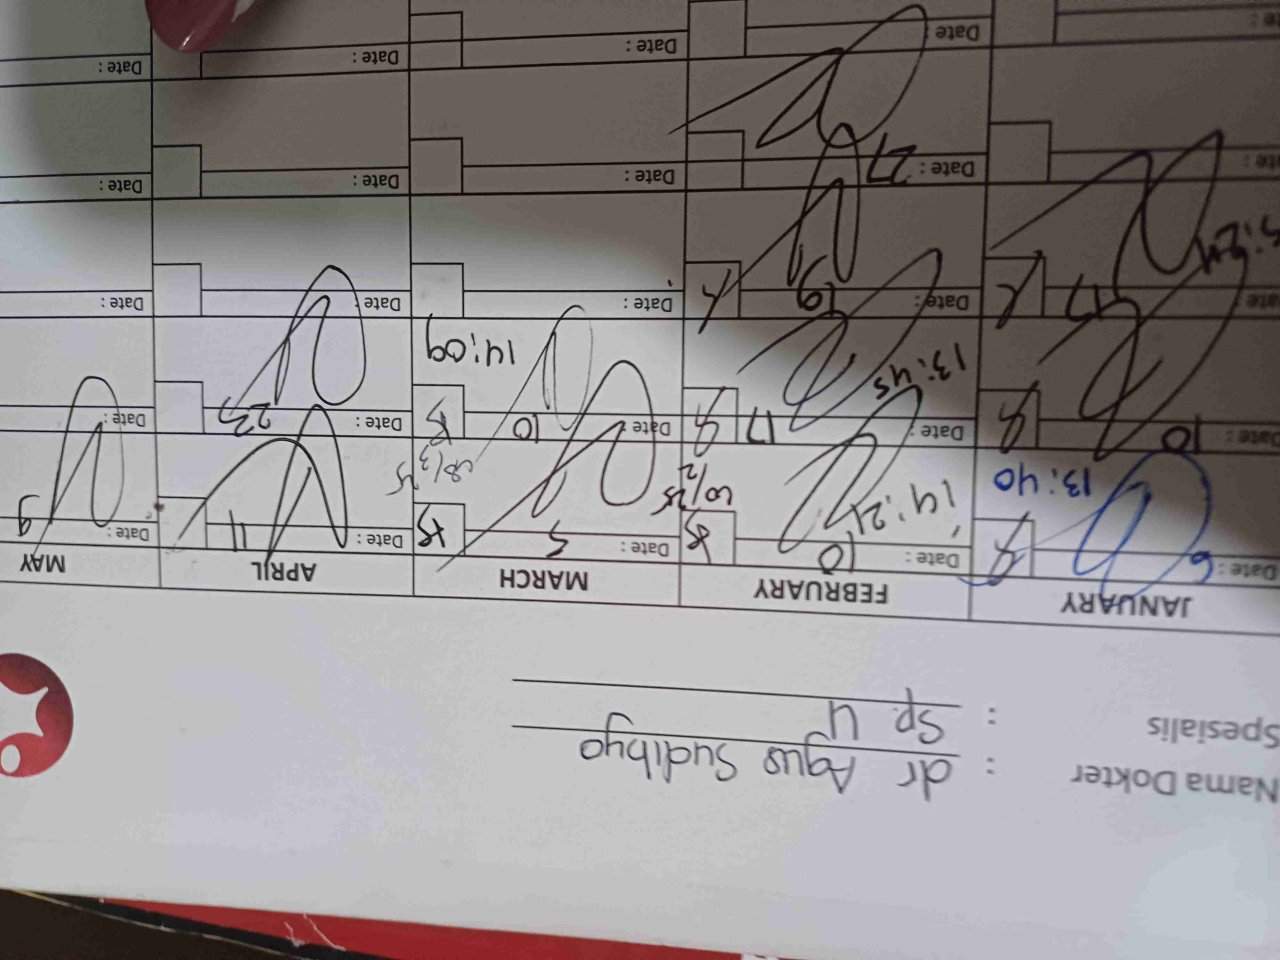 Nama Dokter : dr Agus Sudibyo
Spesialis : Sp. U
JANUARY FEBRUARY MARCH APRIL MAY
Date: 6 Date: 10 Date: 5 Date: 11 Date: 9
13:40 14:21
Date: 10 Date: 17 Date: 10 Date: 23 Date:
13:45 14:09
Date: 17 Date: 19 Date: Date: Date:
Date: Date: 27 Date: Date: Date:
Date: Date: Date: Date: Date: